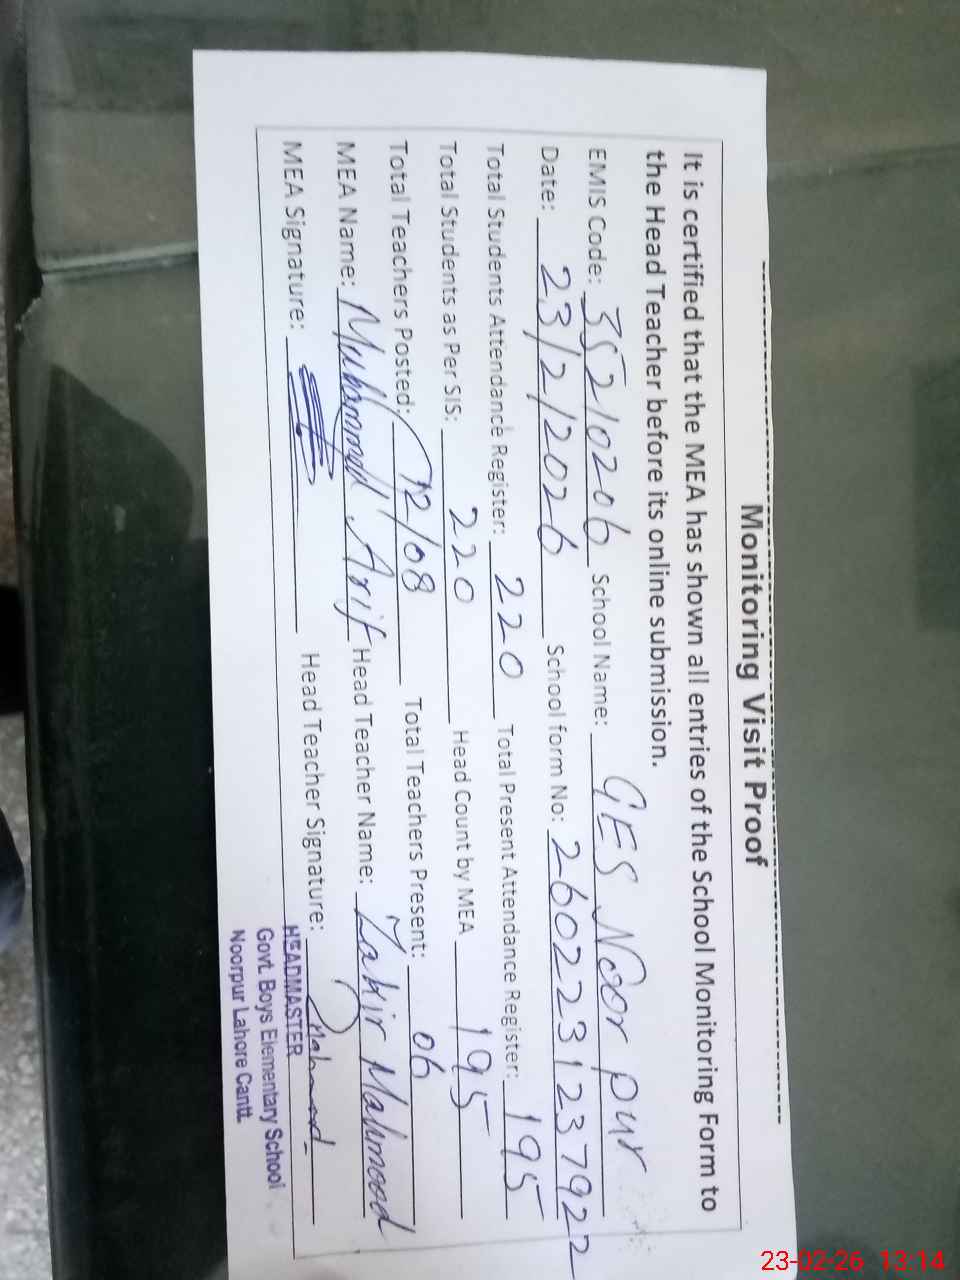 Monitoring Visit Proof
It is certified that the MEA has shown all entries of the School Monitoring Form to
the Head Teacher before its online submission.
EMIS Code: 35210206 School Name: GES Noor pur
Date: 23/2/2026 School form No: 2602231237922
Total Students Attendance Register: 220 Total Present Attendance Register: 195
Total Students as Per SIS: 220 Head Count by MEA 195
Total Teachers Posted: 12/08 Total Teachers Present: 06
MEA Name: Muhammad Arif Head Teacher Name: Zakir Mahmood
MEA Signature: Head Teacher Signature: Mahmood
HEADMASTER
Govt. Boys Elementary School
Noorpur Lahore Cantt.
23-02-26 13:14